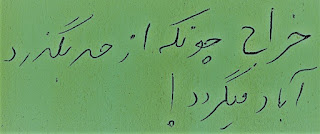 خراج چونکه از حد بگذرد
آباد میگردد!